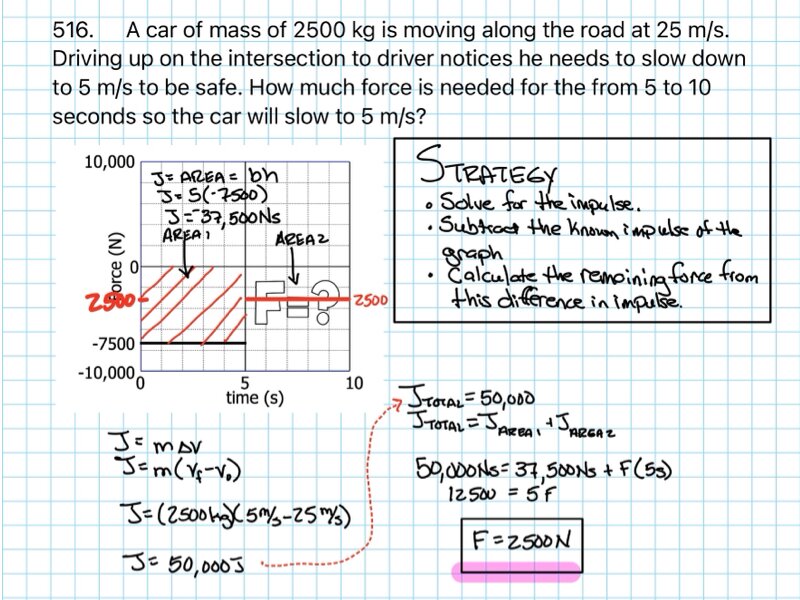 516. A car of mass of 2500 kg is moving along the road at 25 m/s.
Driving up on the intersection to driver notices he needs to slow down
to 5 m/s to be safe. How much force is needed for the from 5 to 10
seconds so the car will slow to 5 m/s?
10,000
J= AREA = bh
J= 5(-7500)
J=-37,500Ns
AREA 1
AREA 2
Force (N)
0
2500
F=?
2500
-7500
-10,000
0
5
10
time (s)
STRATEGY
• Solve for the impulse.
• Subtract the known impulse of the
graph
• Calculate the remaining force from
this difference in impulse.
J= m∆V
J=m(Vf-V₀)
J=(2500kg)(5m/s-25m/s)
J= 50,000J
JTOTAL= 50,000
JTOTAL=JAREA 1 + JAREA 2
50,000Ns= 37,500Ns + F(5s)
12500 = 5F
F=2500N